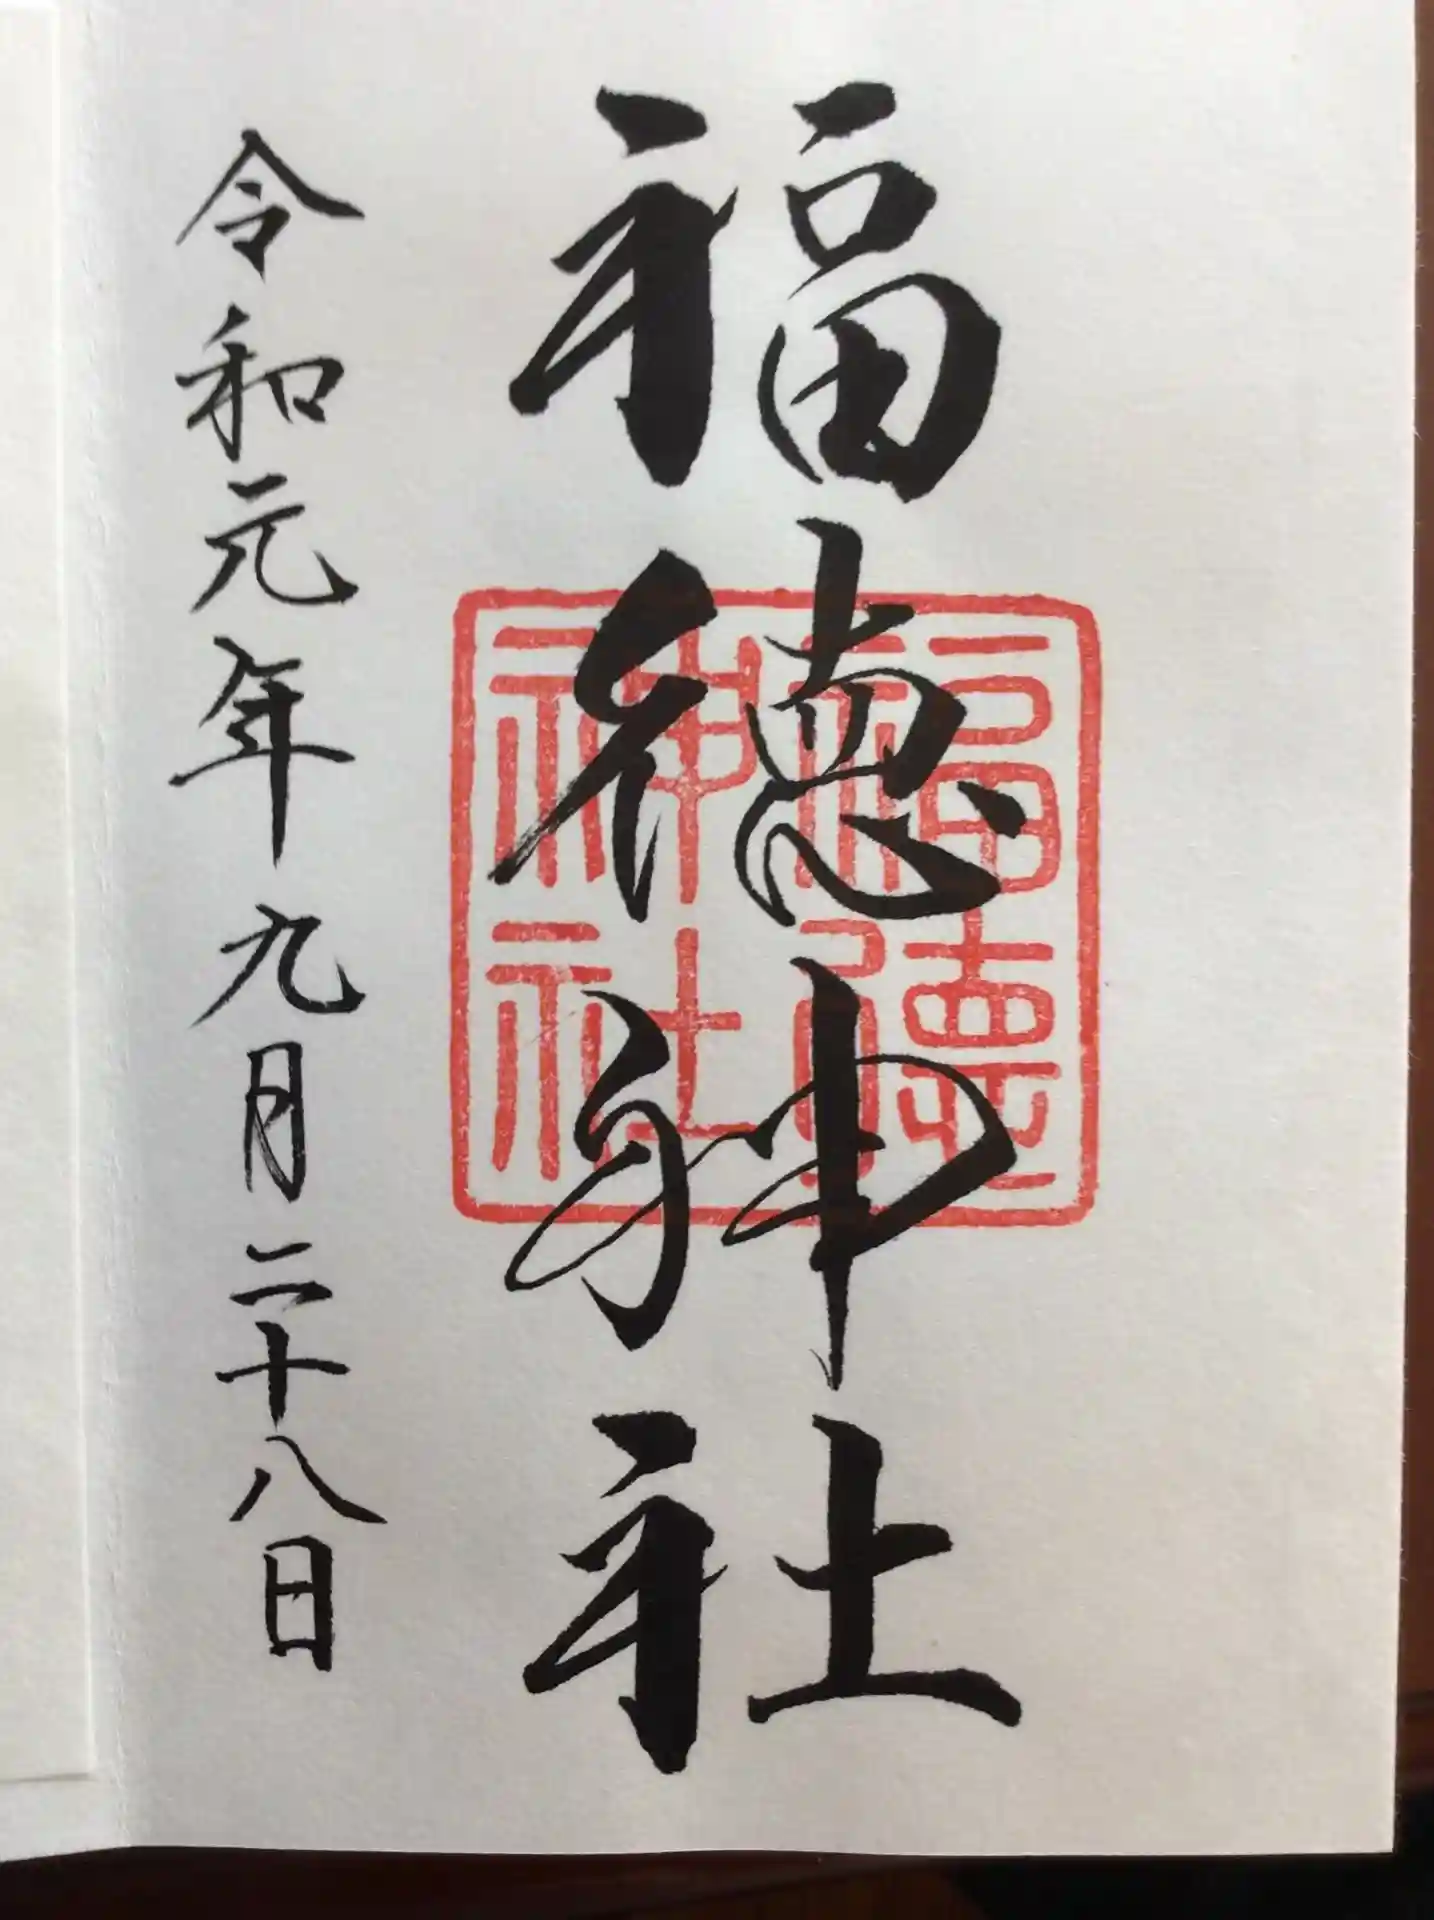 福徳神社
福徳
神社
令和元年九月二十八日